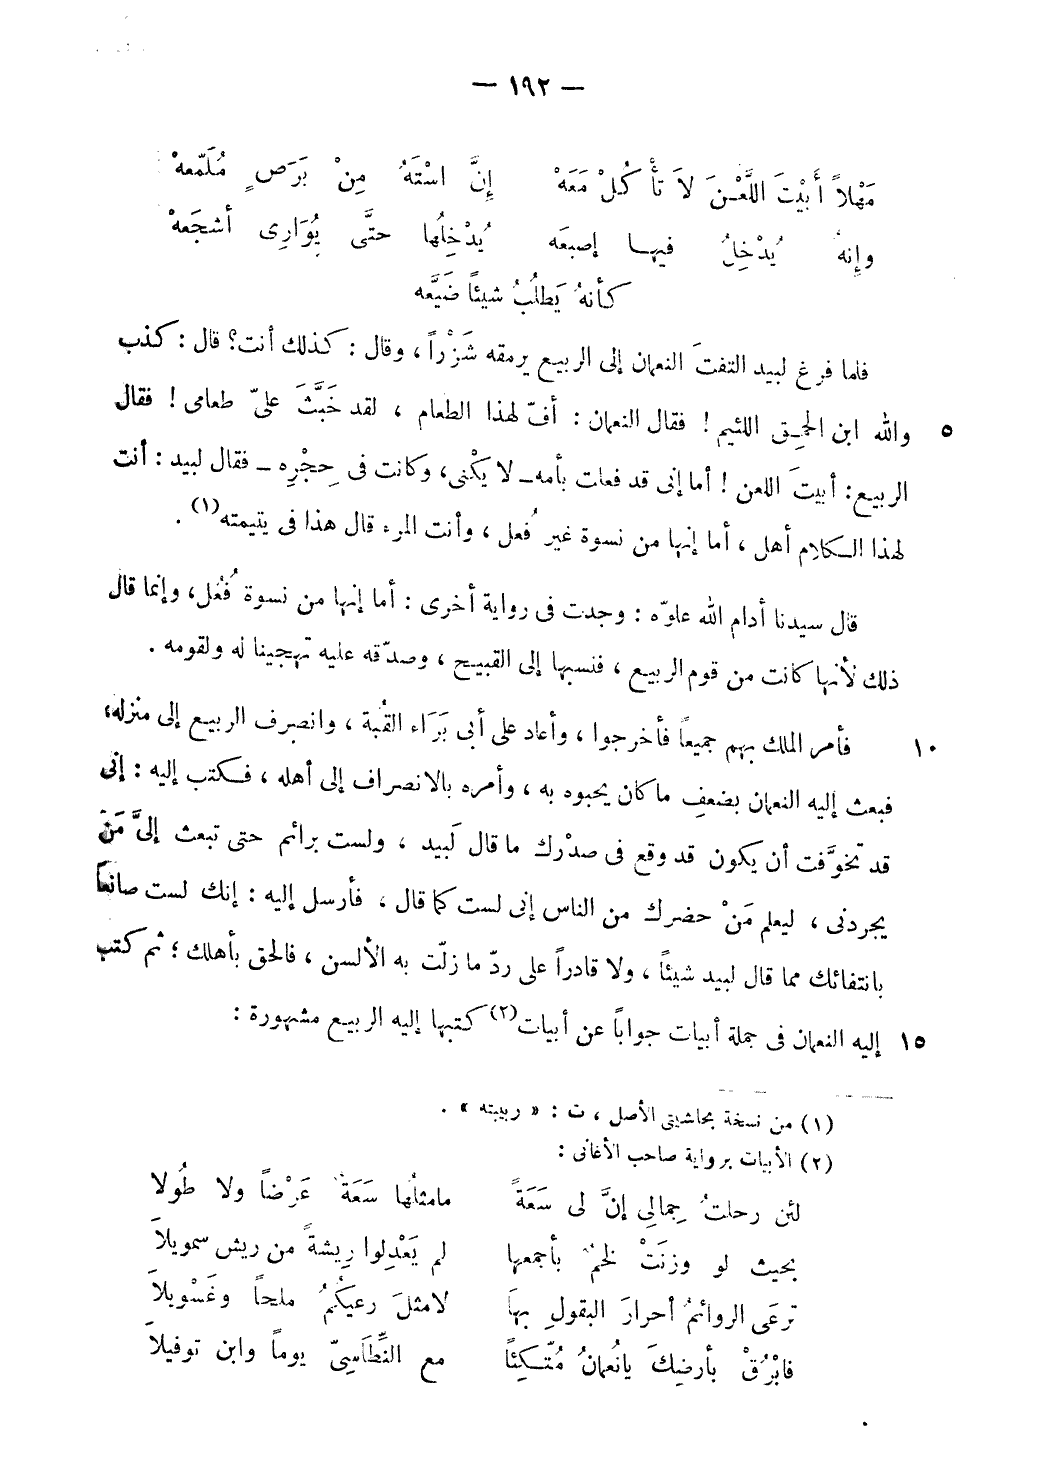 — ١٩٢ —
مَهْلاً أَبَيْتَ اللَّعْنَ لاَ تَأْكُلْ مَعَهْ إِنَّ اسْتَهُ مِنْ بَرَصٍ مُلَمَّعهْ
وإنهُ يُدْخِلُ فيها إصبعَه يُدْخِلُها حتَّى يُوَارِى أشجَعهْ
كأنهُ يَطلُبُ شيئاً ضَيَّعه
فلما فرغ لبيد التفتَ النعمان إلى الربيع يرمقه شَزْراً ، وقال : كذلك أنت؟ قال : كذب
٥ والله ابن الحمِق اللئيم ! فقال النعمان : أفّ لهذا الطعام ، لقد خَبَّثَ علىّ طعامى ! فقال
الربيع : أبيتَ اللعن ! أما إنى قد فعلت بأمه ـ لا يكْنى، وكانت فى حِجْرِه ـ فقال لبيد : أنت
لهذا الكلام أهل ، أما إنها من نسوة غير فُعل ، وأنت المرء قال هذا فى يتيمته (١) .
قال سيدنا أدام الله علوّه : وجدت فى رواية أخرى : أما إنها من نسوة فُعُل، وإنما قال
ذلك لأنها كانت من قوم الربيع ، فنسبها إلى القبيح ، وصدّقه عليه تهجينا له ولقومه .
١٠ فأمر الملك بهم جميعاً فأخرجوا ، وأعاد على أبى بَرَاء القُبة ، وانصرف الربيع إلى منزله،
فبعث إليه النعمان بضعفِ ما كان يحبوه به ، وأمره بالانصراف إلى أهله ، فكتب إليه : إنى
قد تخوَّفت أن يكون قد وقع فى صدْرك ما قال لَبيد ، ولست برائم حتى تبعث إلىَّ مَنْ
يجردنى ، ليعلم مَنْ حضرك من الناس إنى لست كما قال ، فأرسل إليه : إنك لست صانعاً
بانتفائك مما قال لبيد شيئاً ، ولا قادراً على ردّ ما زلّت به الألسن ، فالحق بأهلك ؛ ثم كتب
١٥ إليه النعمان فى جملة أبيات جواباً عن أبيات (٢) كتبها إليه الربيع مشهورة :
(١) من نسخة بحاشيتى الأصل ، ت : « ربيبته » .
(٢) الأبيات برواية صاحب الأغانى :
لئن رحلتُ جِمالِى إنَّ لى سَعَةً مامثلُها سَعَةً عَرْضاً ولا طُولا
بحيث لو وزنَتْ لخمٌ بأجمعها لم يَعْدِلوا رِيشةً من ريش سمويلاَ
ترعَى الروائمُ أحرارَ البقولِ بهَا لامثلَ رعيكُمُ ملحاً وغَسْويلاَ
فابْرُقْ بأرضِكَ يانُعمانُ مُتّكِئاً مع النِّطَاسِىّ يوماً وابن توفيلاَ